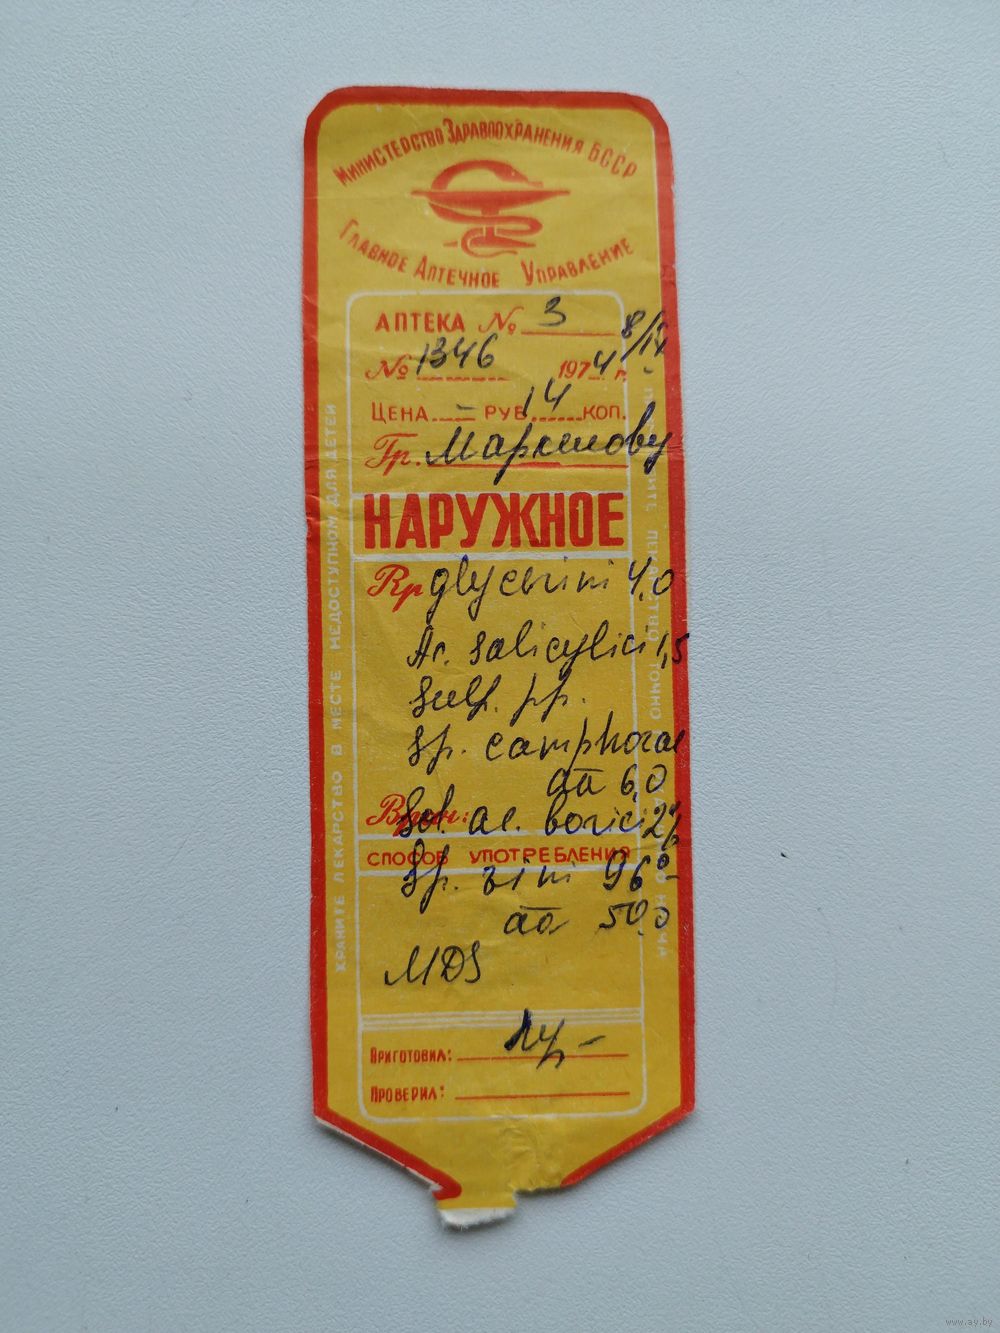 Министерство Здравоохранения БССР
Главное Аптечное Управление
Аптека № 3
№ 1346 1974 г.
Цена – руб. 14 коп.
Гр. Маркелову
НАРУЖНОЕ
Rp glycerini 4,0
Ac. salicylici 1,5
Sulf. pp.
Sp. camphorae
āā 6,0
Sol. ac. borici 2%
СПОСОБ УПОТРЕБЛЕНИЯ
Sp. vini 96°
āā 50,0
MDS
Приготовил:
Проверил:
ХРАНИТЕ ЛЕКАРСТВО В МЕСТЕ НЕДОСТУПНОМ ДЛЯ ДЕТЕЙ
www.ay.by